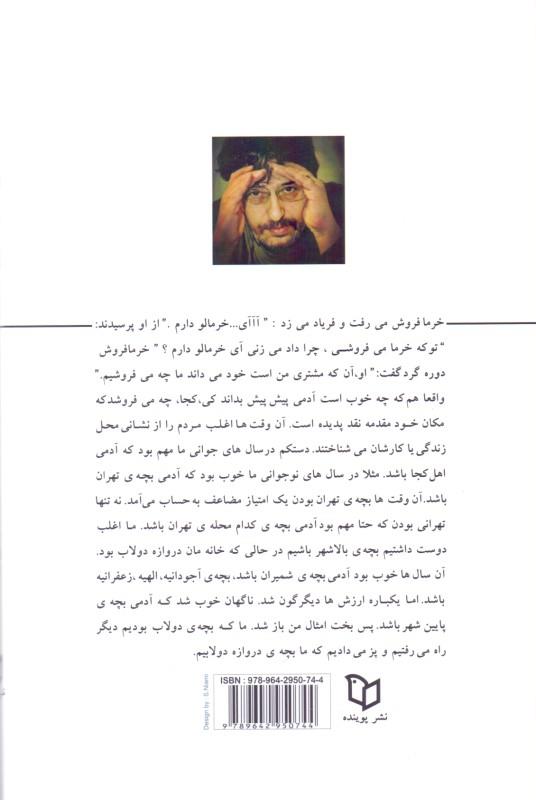 خرمافروش می رفت و فریاد می زد : " آآآی...خرمالو دارم ." از او پرسیدند:
" توکه خرما می فروشی ، چرا داد می زنی آی خرمالو دارم ؟ " خرمافروش
دوره گردگفت:" او،آن که مشتری من است خود می داند ما چه می فروشیم."
واقعا هم که چه خوب است آدمی پیش پیش بداند کی،کجا، چه می فروشدکه
مکان خود مقدمه نقد پدیده است. آن وقت ها اغلب مردم را از نشانی محل
زندگی یا کارشان می شناختند. دستکم درسال های جوانی ما مهم بود که آدمی
اهل کجا باشد. مثلا در سال های نوجوانی ما خوب بود که آدمی بچه ی تهران
باشد.آن وقت ها بچه ی تهران بودن یک امتیاز مضاعف به حساب می آمد. نه تنها
تهرانی بودن که حتا مهم بود آدمی بچه ی کدام محله ی تهران باشد. ما اغلب
دوست داشتیم بچه ی بالاشهر باشیم در حالی که خانه مان دروازه دولاب بود.
آن سال ها خوب بود آدمی بچه ی شمیران باشد، بچه ی آجودانیه، الهیه ،زعفرانیه
باشد. اما یکباره ارزش ها دیگرگون شد. ناگهان خوب شد که آدمی بچه ی
پایین شهر باشد. پس بخت امثال من باز شد. ما که بچه ی دولاب بودیم دیگر
راه می رفتیم و پز می دادیم که ما بچه ی دروازه دولابیم.
ISBN : 978-964-2950-74-4
9 789642 950744
Design by : S.Niami
نشر پوینده